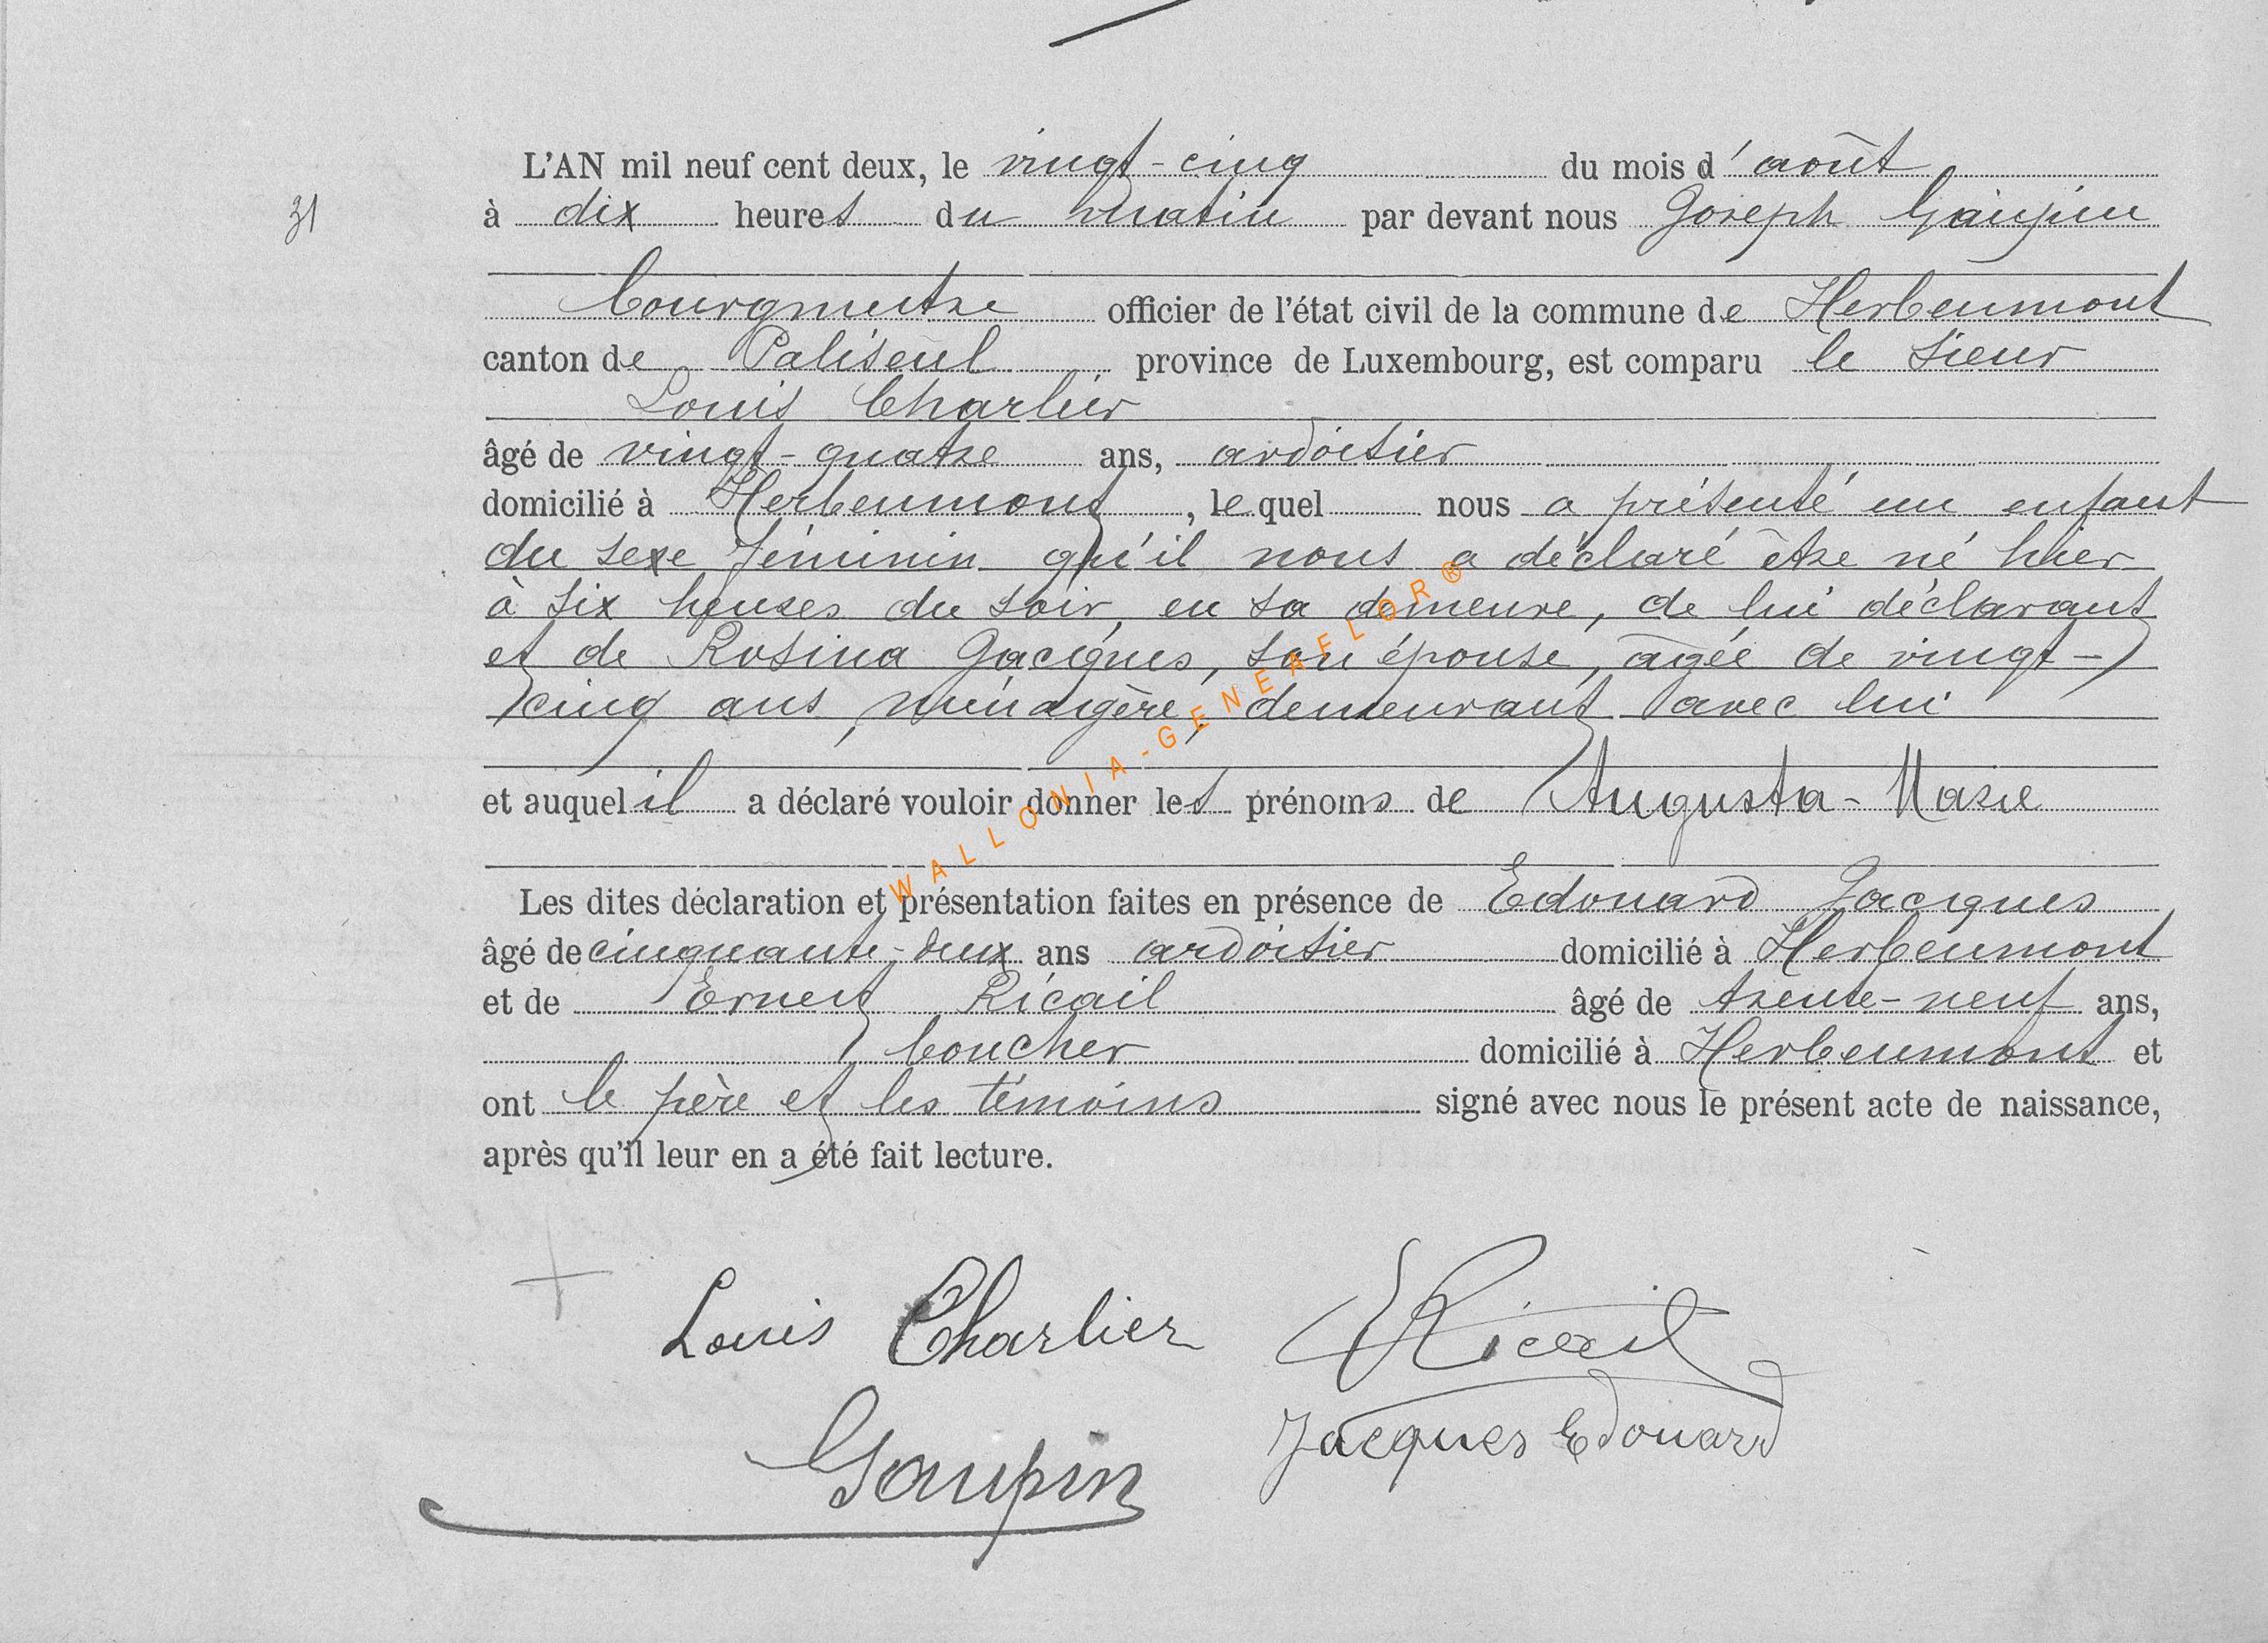 L'AN mil neuf cent deux, le vingt-cinq du mois d'août
31
à dix heures du matin par devant nous Joseph Gaupin
bourgmestre officier de l'état civil de la commune de Herbeumont
canton de Paliseul province de Luxembourg, est comparu le sieur
Louis Charlier
âgé de vingt-quatre ans, ardoisier
domicilié à Herbeumont, lequel nous a présenté un enfant
du sexe féminin qu'il nous a déclaré être né hier
à six heures du soir, en sa demeure, de lui déclarant
et de Rosina Jacques, son épouse, âgée de vingt-
cinq ans, ménagère, demeurant avec lui
et auquel il a déclaré vouloir donner les prénoms de Augusta-Marie
Les dites déclaration et présentation faites en présence de Edouard Jacques
âgé de cinquante-deux ans ardoisier domicilié à Herbeumont
et de Ernest Ricail âgé de trente-neuf ans,
boucher domicilié à Herbeumont et
ont le père et les témoins signé avec nous le présent acte de naissance,
après qu'il leur en a été fait lecture.
Louis Charlier ERicail
Jacques Edouard
Gaupin
WALLONIA-GENEAFLOR®